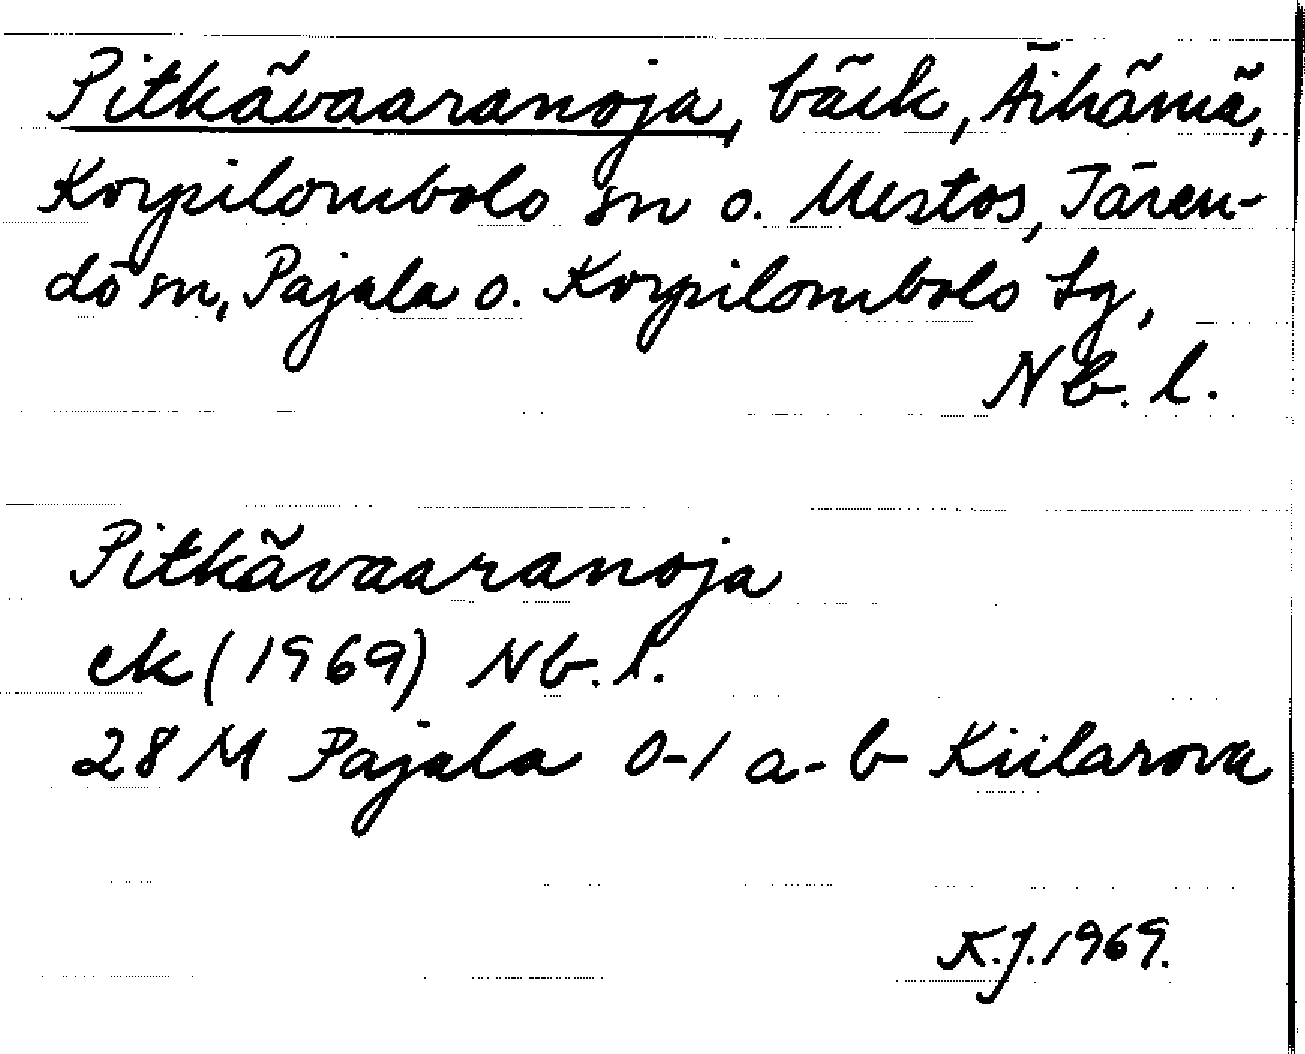 Pitkävaaranoja, bäck, Äihämä,
Korpilombolo sn o. Mestos, Tären-
dö sn, Pajala o. Korpilombolo tg,
Nb. l.
Pitkävaaranoja
ek (1969) Nb. l.
28 M Pajala 0-1 a-b Kiilarova
K.J. 1969.